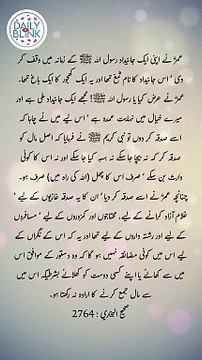 DAILY
BLINK
عمرؓ نے اپنی ایک جائیداد رسول اللہ ﷺ کے زمانہ میں وقف کر
دی ' اس جائیداد کا نام ثمغ تھا اور یہ ایک کھجور کا باغ تھا۔
عمرؓ نے عرض کیا یا رسول اللہ ﷺ! مجھے ایک جائیداد ملی ہے اور
میرے خیال میں نہایت عمدہ ہے ' اس لیے میں نے چاہا کہ
اسے صدقہ کر دوں تو نبی کریم ﷺ نے فرمایا کہ اصل مال کو
صدقہ کر کہ نہ بیچا جا سکے نہ ہبہ کیا جا سکے اور نہ اس کا کوئی
وارث بن سکے ' صرف اس کا پھل (اللہ کی راہ میں) صرف ہو۔
چنانچہ عمرؓ نے اسے صدقہ کر دیا ' ان کا یہ صدقہ غازیوں کے لیے '
غلام آزاد کرانے کے لیے، محتاجوں اور کمزوروں کے لیے ' مسافروں
کے لیے اور رشتہ داروں کے لیے تھا اور یہ کہ اس کے نگراں کے
لیے اس میں کوئی مضائقہ نہیں ہو گا کہ وہ دستور کے موافق اس
میں سے کھائے یا اپنے کسی دوست کو کھلائے بشرطیکہ اس میں
سے مال جمع کرنے کا ارادہ نہ رکھتا ہو۔
صحیح البخاری : 2764